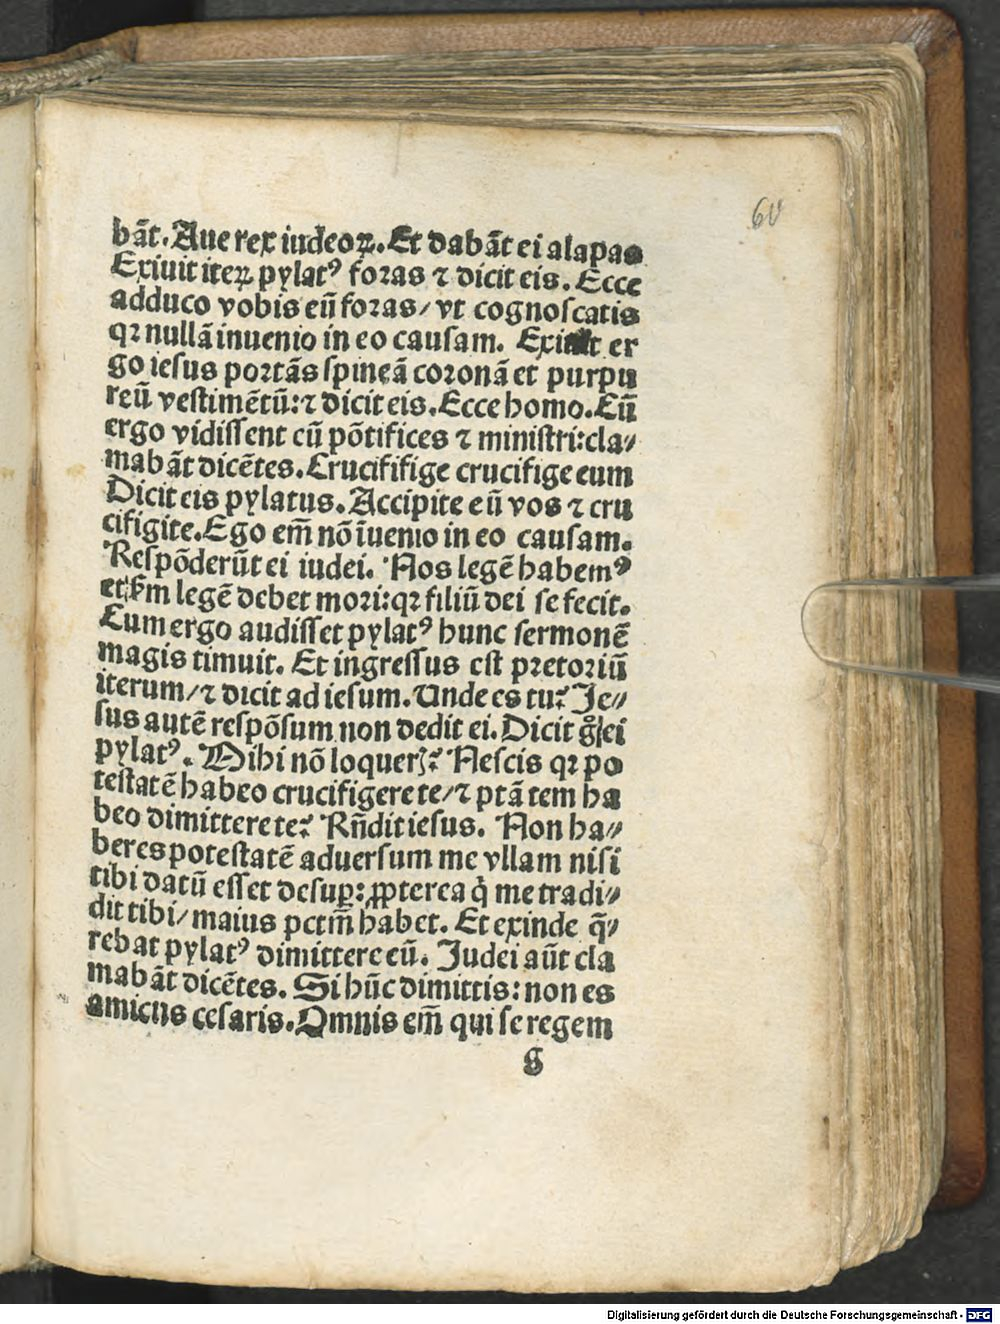 60
bāt. Aue rex iudeoꝝ. Et dabāt ei alapas
Exiuit iteꝝ pylatꝰ foras ⁊ dicit eis. Ecce
adduco vobis eū foras/ vt cognoscatis
qꝛ nullā inuenio in eo causam. Exiuit er
go iesus portās spineā coronā et purpu
reū vestimētū: ⁊ dicit eis. Ecce homo. Cū
ergo vidissent eū pōtifices ⁊ ministri: cla⸗
mabāt dicētes. Crucififige crucifige eum
Dicit eis pylatus. Accipite eū vos ⁊ cru
cifigite. Ego em̄ nō īuenio in eo causam.
Respōderūt ei iudei. Nos legē habemꝰ
et ẜm legē debet mori: qꝛ filiū dei se fecit.
Cum ergo audisset pylatꝰ hunc sermonē
magis timuit. Et ingressus est pretoriū
iterum/ ⁊ dicit ad iesum. Unde es tu? Je⸗
sus autē respōsum non dedit ei. Dicit gͦ ei
pylatꝰ. Mihi nō loquerꝭ? Nescis qꝛ po
testatē habeo crucifigere te/ ⁊ ptātem ha
beo dimittere te? Rn̄dit iesus. Non ha⸗
beres potestatē aduersum me vllam nisi
tibi datū esset desuꝑ: ꝓpterea q̇ me tradi⸗
dit tibi/ maius pctm̄ habet. Et exinde q̄⸗
rebat pylatꝰ dimittere eū. Judei aūt cla
mabāt dicētes. Si hūc dimittis: non es
amicus cesaris. Omnis em̄ qui se regem
S
Digitalisierung gefördert durch die Deutsche Forschungsgemeinschaft - DFG